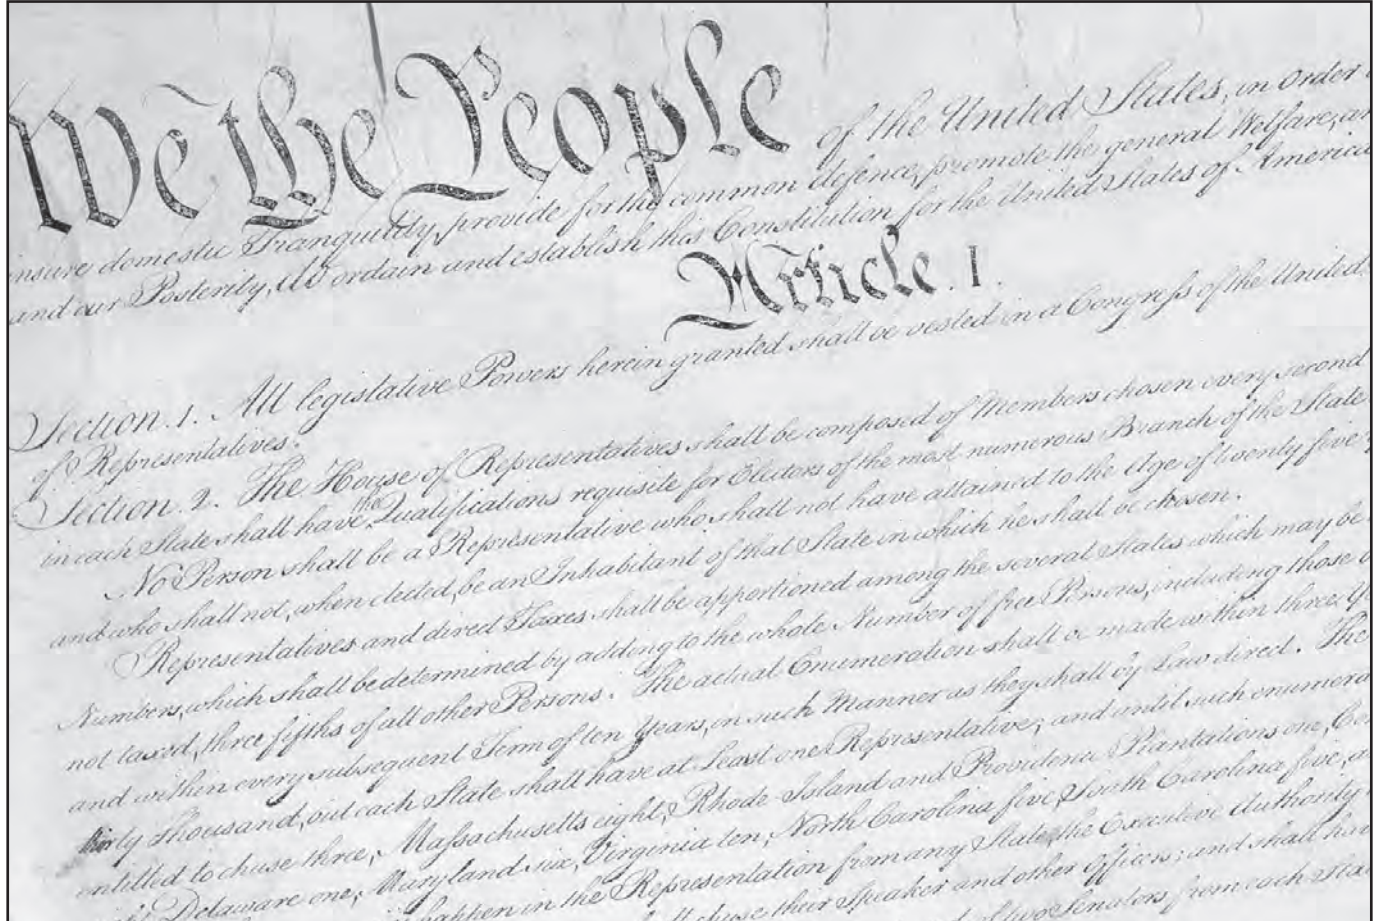 We the People of the United States, in Order
insure domestic Tranquility, provide for the common defence, promote the general Welfare, an
and our Posterity, do ordain and establish this Constitution for the United States of America
Article. I.
Section. 1. All legislative Powers herein granted shall be vested in a Congress of the United
of Representatives.
Section. 2. The House of Representatives shall be composed of Members chosen every second
in each State shall have the Qualifications requisite for Electors of the most numerous Branch of the State
No Person shall be a Representative who shall not have attained to the Age of twenty five
and who shall not, when elected, be an Inhabitant of that State in which he shall be chosen.
Representatives and direct Taxes shall be apportioned among the several States which may be
Numbers, which shall be determined by adding to the whole Number of free Persons, including those
not taxed, three fifths of all other Persons. The actual Enumeration shall be made within three Ye
and within every subsequent Term of ten Years, in such Manner as they shall by Law direct. The
thirty Thousand, but each State shall have at Least one Representative; and until such enumera
entitled to chuse three, Massachusetts eight, Rhode Island and Providence Plantations one, Con
Delaware one, Maryland six, Virginia ten, North Carolina five, South Carolina five, a
happen in the Representation from any State, the Executive Authority
chuse their Speaker and other Officers; and shall hav
two Senators from each Sta